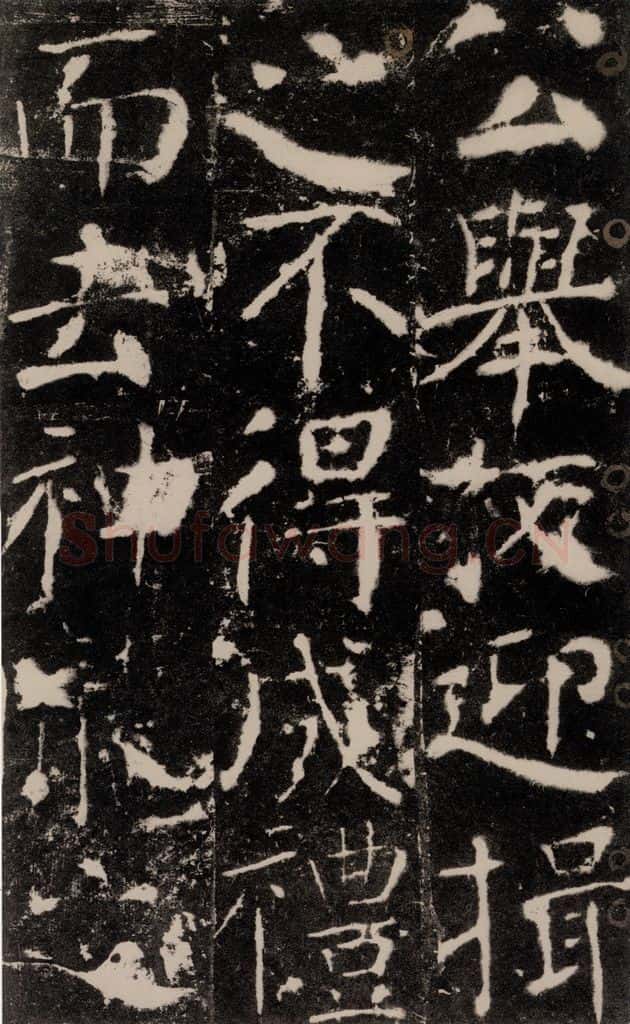 公舉板迎攝
之不得成禮
而去神
Shufawang.CN